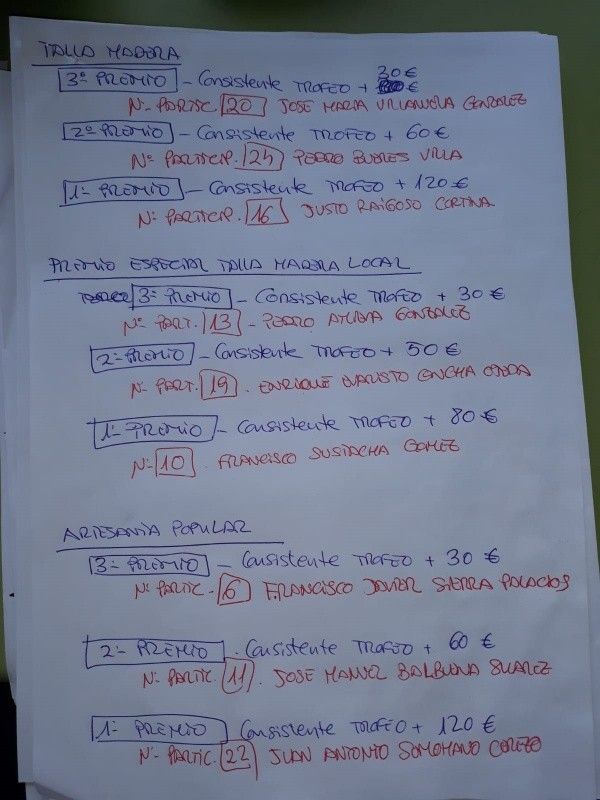 TALLA MADERA
30€
3º PREMIO - Consistente TROFEO + €
Nº PARTIC. 20 JOSE MARIA VILLANUEVA GONZALEZ
2º PREMIO - Consistente TROFEO + 60€
Nº PARTICIP. 24 PEDRO VILLA
1º PREMIO - Consistente TROFEO + 120€
Nº PARTICIP. 16 JUSTO RAIGOSO CORTINA
PREMIO ESPECIAL TALLA MADERA LOCAL
3º PREMIO - Consistente TROFEO + 30€
Nº PART. 13 - PEDRO GONZALEZ
2º PREMIO - Consistente TROFEO + 50€
Nº PART. 19. ENRIQUE EVARISTO
1º PREMIO - Consistente TROFEO + 80€
Nº 10. FRANCISCO SUSTACHA GOMEZ
ARTESANIA POPULAR
3º PREMIO - Consistente TROFEO + 30 €
Nº PARTIC. 6 FRANCISCO JAVIER SIERRA PALACIOS
2º PREMIO. Consistente TROFEO + 60 €
Nº PARTIC. 11. JOSE MANUEL BALBUENA SUAREZ
1º PREMIO Consistente TROFEO + 120 €
Nº PARTIC. 22 JUAN ANTONIO SOMOHANO